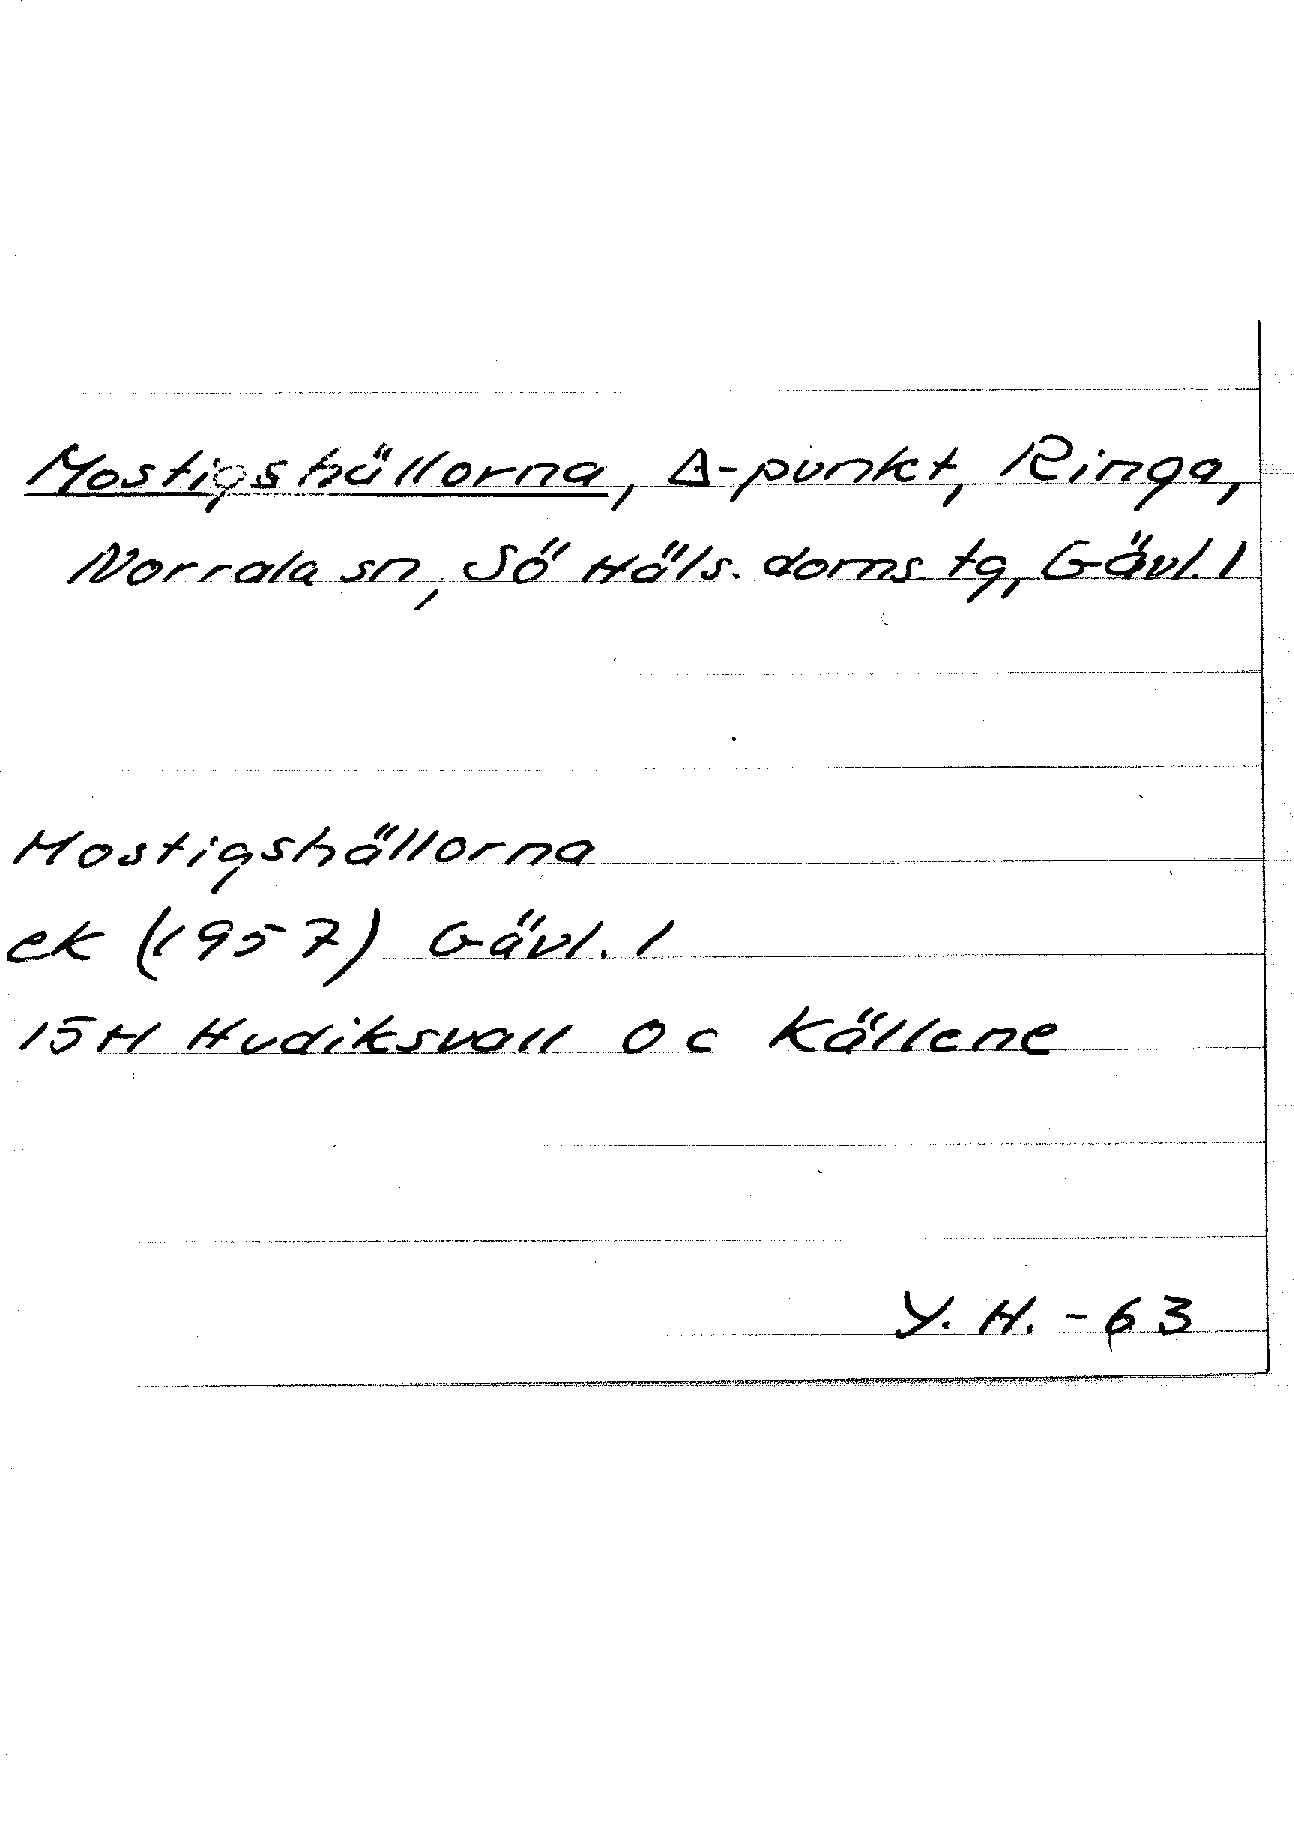 Mostigshällorna, Δ-punkt, Ringa,
Norrala sn, Sö Häls. doms. tg, Gävl. l
Mostigshällorna
ek (1957) Gävl. l
15H Hudiksvall 0 c Källene
Y. H. - 63